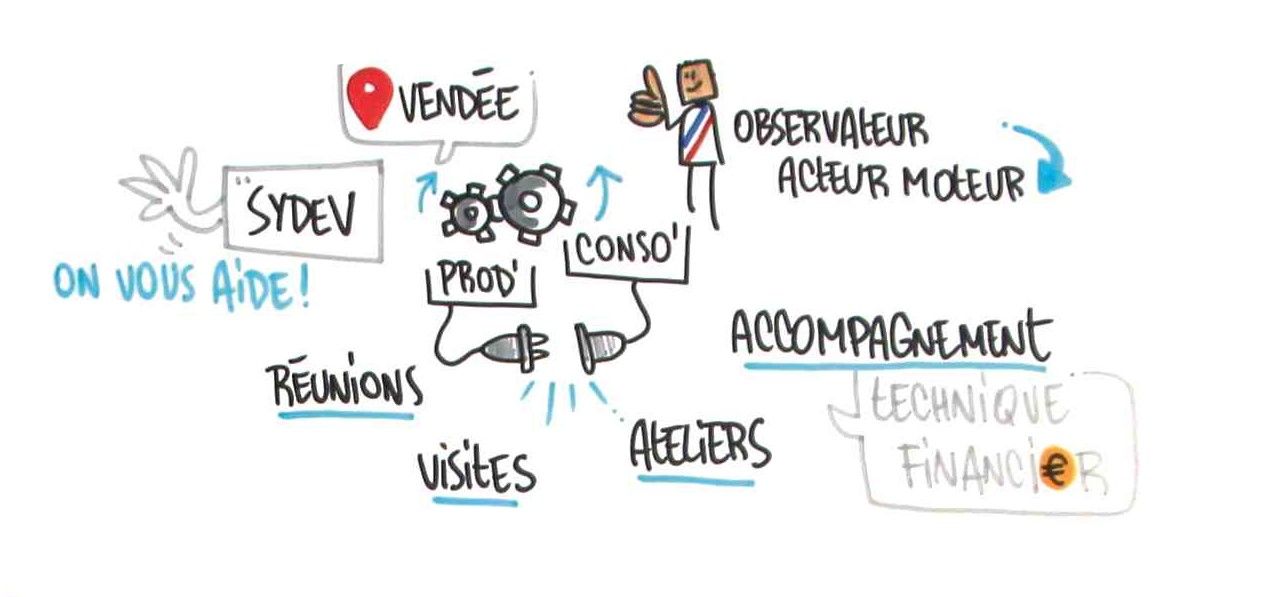 VENDÉE
OBSERVATEUR
ACTEUR MOTEUR
SYDEV
ON VOUS AIDE !
CONSO'
PROD'
ACCOMPAGNEMENT
TECHNIQUE
FINANCI€R
RÉUNIONS
VISITES
ATELIERS